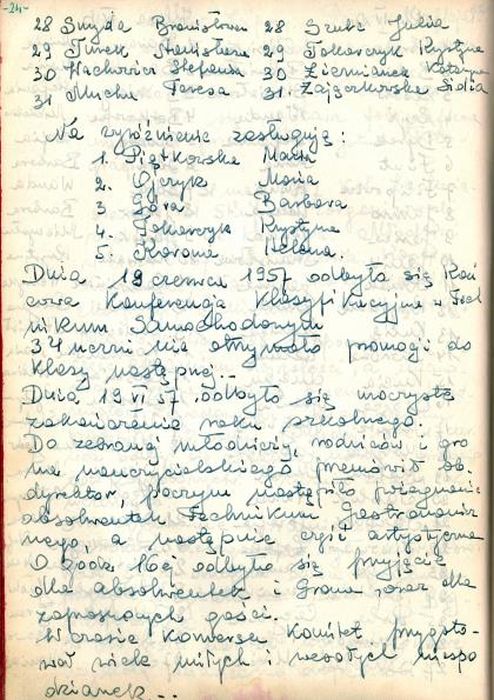 -24-
28 Smyda Bronisława 28 Szulc Julia
29 Turek Stanisława 29 Tokarczyk Krystyna
30 Wachowicz Stefania 30 Ziemianek Katarzyna
31 Mucha Teresa 31. Zajączkowska Lidia
Na wyróżnienie zasługują:
1. Piątkowska Maria
2. Ojczyk Maria
3 Góra Barbara
4. Tokarczyk Krystyna
5. Korona Helena.
Dnia 19 czerwca 1957 odbyła się Koń
cowa Konferencja Klasyfikacyjna w Tech
nikum Samochodowym
34 uczni nie otrzymało promocji do
klasy następnej..
Dnia 19 VI 57 odbyło się uroczyste
zakończenie roku szkolnego.
Do zebranej młodzieży, rodziców i gro
na nauczycielskiego przemówił ob.
dyrektor, poczym nastąpiło pożegnanie
absolwentek Technikum Gastronomicz
nego, a następnie część artystyczna
O godz 16ej odbyło się przyjęcie
dla absolwentek i Grona, oraz dla
zaproszonych gości.
W czasie Komersu Komitet przygoto-
wał wiele miłych i wesołych niespo
dzianek..